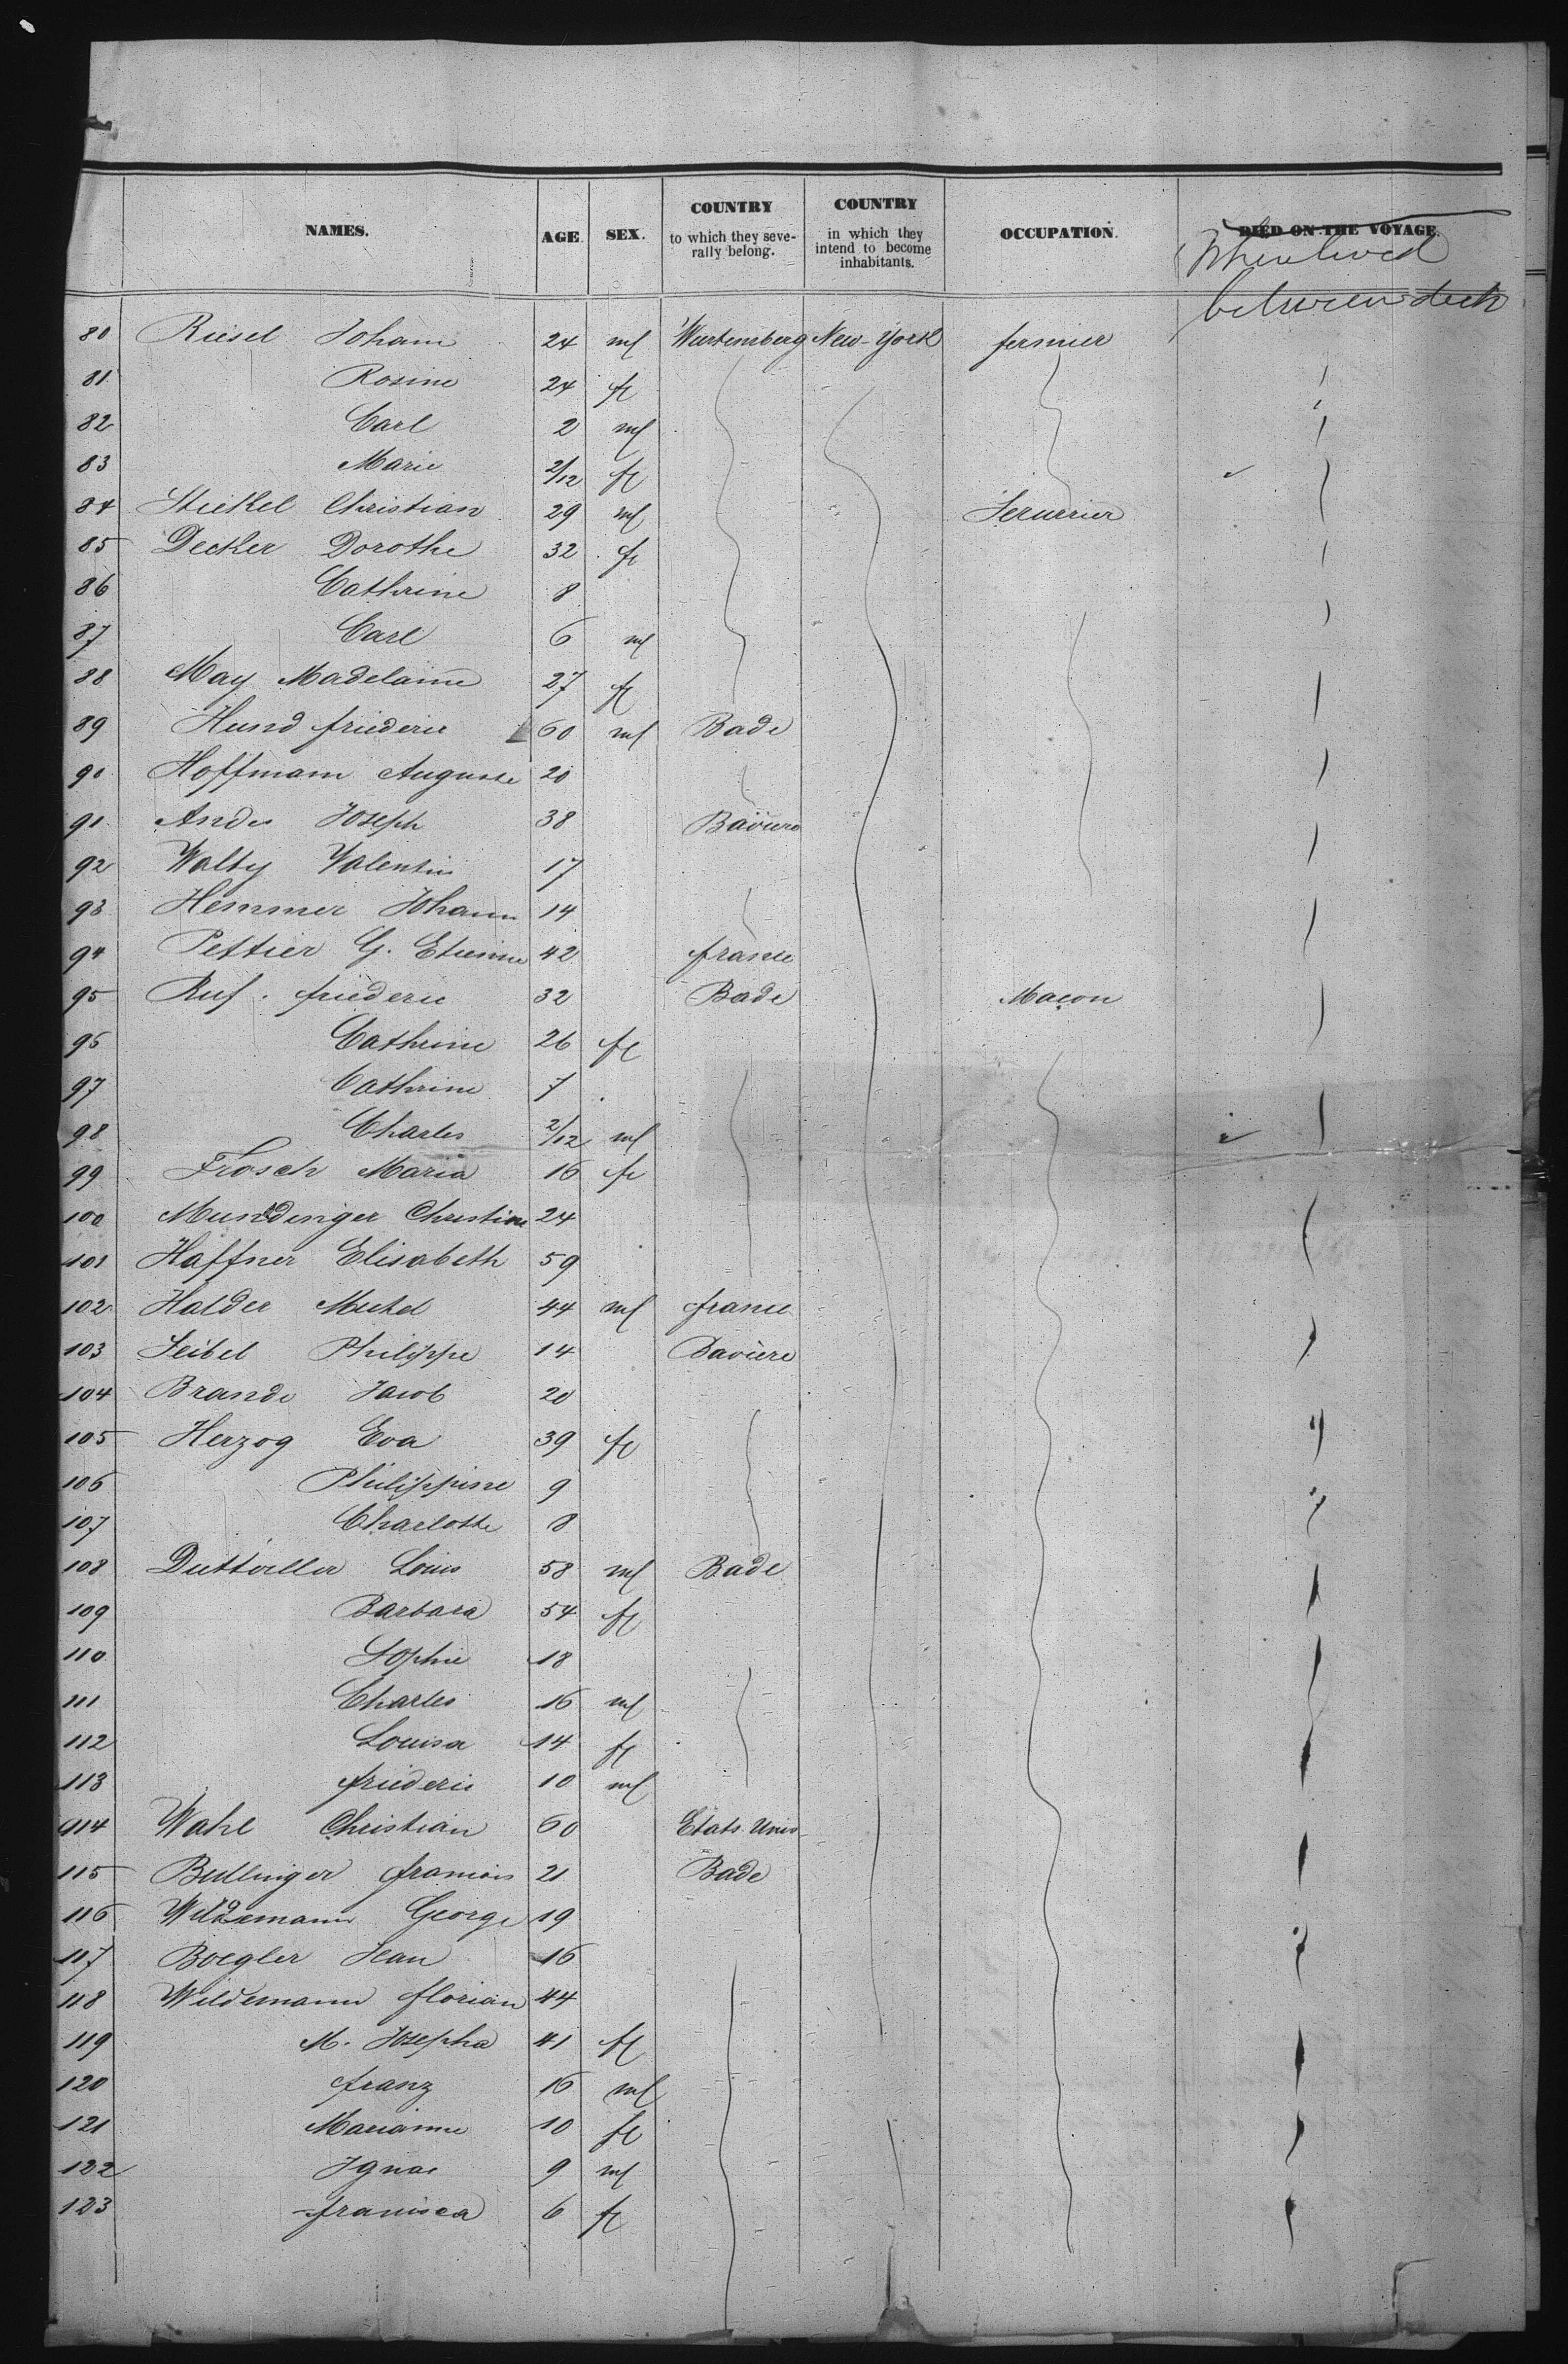 NAMES. AGE. SEX. COUNTRY to which they seve- rally belong. COUNTRY in which they intend to become inhabitants. OCCUPATION. DIED ON THE VOYAGE.
between deck
80 Riesel Johann 24 ml Wurtemberg New-York fermier
81 Rosine 24 fe
82 Carl 2 ml
83 Marie 2/12 fe
84 Stiekel Christian 29 ml Serurrier
85 Decker Dorothe 32 fe
86 Cathrine 8
87 Carl 6 ml
88 May Madelaine 27 fe
89 Hund friederic 60 ml Bade
90 Hoffmann Auguste 20
91 Andes Joseph 38 Baviere
92 Walty Valentin 17
93 Hemmer Johann 14
94 Pettier G. Etienne 42 france
95 Ruf. friederic 32 Bade Maçon
96 Cathrine 26 fe
97 Cathrine 7
98 Charles 2/12 ml
99 Frosch Maria 16 fe
100 Mundinger Christine 24
101 Haffner Elisabeth 59
102 Halder Michel 44 ml france
103 Seibel Philippe 14 Baviere
104 Brande Jacob 20
105 Herzog Eva 39 fe
106 Philippine 9
107 Charlotte 8
108 Duttweller Louis 58 ml Bade
109 Barbara 54 fe
110 Sophie 18
111 Charles 16 ml
112 Louisa 14 fe
113 friederic 10 ml
114 Wahl Christian 60 Etats Unis
115 Bullinger francois 21 Bade
116 Wildemann George 19
117 Boegler Jean 16
118 Wildemann florian 44
119 M. Josepha 41 fe
120 franz 16 ml
121 Marianne 10 fe
122 Ignac 9 ml
123 francisca 6 fe